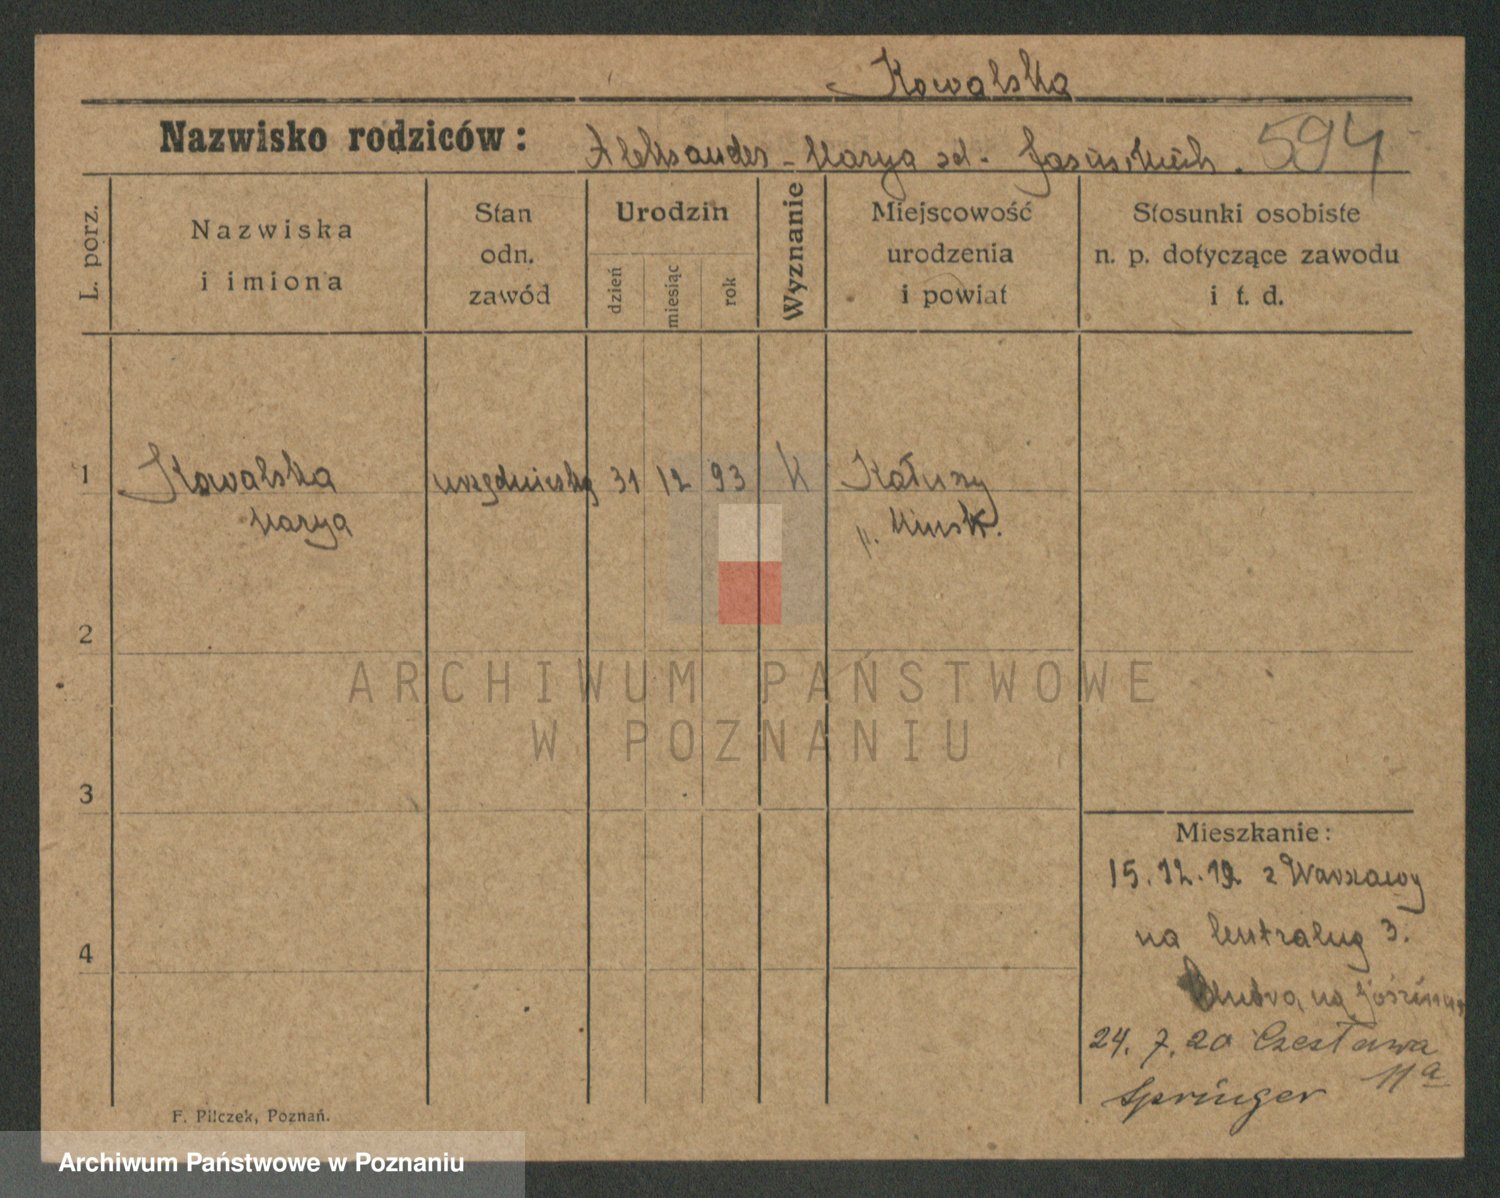 Kowalska
Nazwisko rodziców: Aleksander - Marya zd. 594
L. porz.
Nazwiska i imiona
Stan odn. zawód
Urodzin
dzień
miesiąc
rok
Wyznanie
Miejscowość urodzenia i powiat
Stosunki osobiste n. p. dotyczące zawodu i t. d.
1 Kowalska urzędniczka 31 12 93 K Kałuszy
Marya p. Minsk.
2
ARCHIWUM PAŃSTWOWE
W POZNANIU
3
Mieszkanie:
15.12.19 z Warszawy
na 3.
4
na
24. 7. 20 Czesława
11a
Springer
F. Pilczek, Poznań.
Archiwum Państwowe w Poznaniu